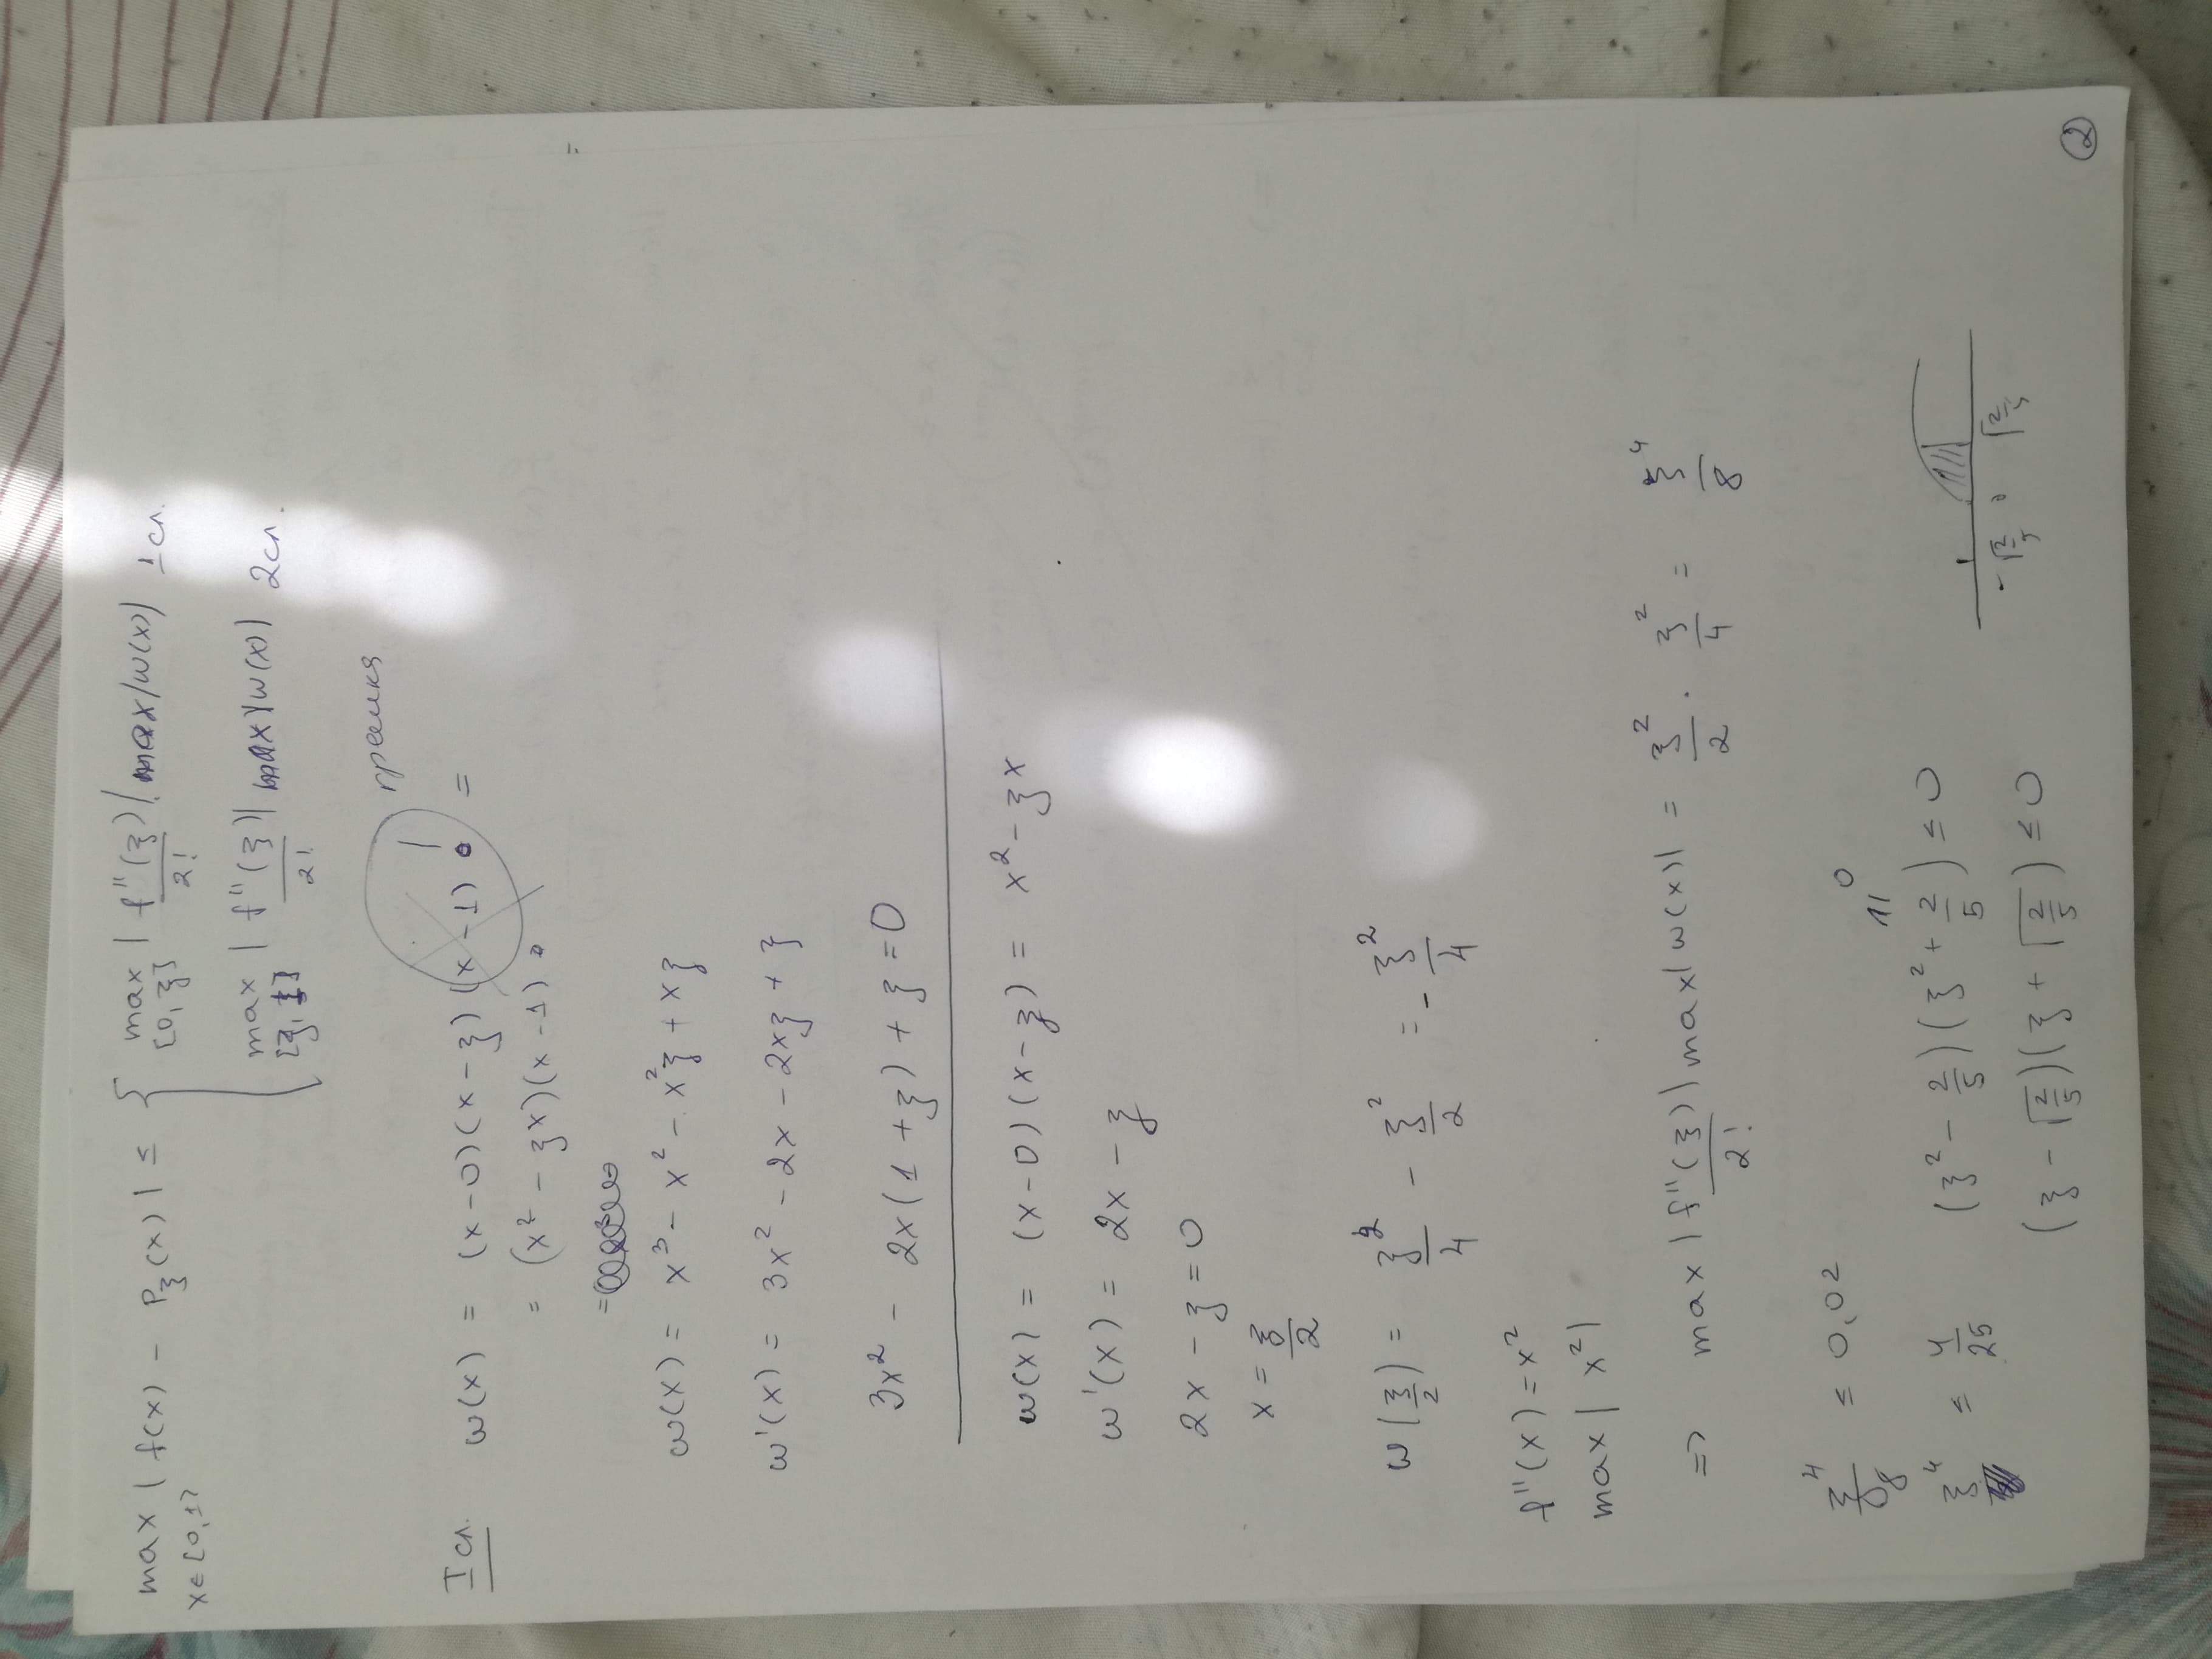 max | f(x) - Pξ(x) | ≤ { max | f''(ξ) | max |w(x)| 1 сл.
x∈[0,1] [0,ξ] 2!
max | f''(ξ) | max |w(x)| 2 сл.
[ξ,1] 2!
грешка
I сл. ω(x) = (x-0)(x-ξ)(x-1) ! =
= (x² - ξx)(x-1)
=
ω(x) = x³ - x² - x²ξ + xξ
ω'(x) = 3x² - 2x - 2xξ + ξ
3x² - 2x(1+ξ) + ξ = 0
ω(x) = (x-0)(x-ξ) = x² - ξx
ω'(x) = 2x - ξ
2x - ξ = 0
x = ξ/2
ω(ξ/2) = ξ²/4 - ξ²/2 = -ξ²/4
f''(x) = x²
max | x² |
=> max | f''(ξ) |/2! max |w(x)| = ξ²/2 · ξ²/4 = ξ⁴/8
ξ⁴/8 ≤ 0,02
0
ξ⁴ ≤ 4/25 (ξ² - 2/5)(ξ² + 2/5) ≤ 0
(ξ - √2/5)(ξ + √2/5) ≤ 0
-√2/5 0 √2/5
2